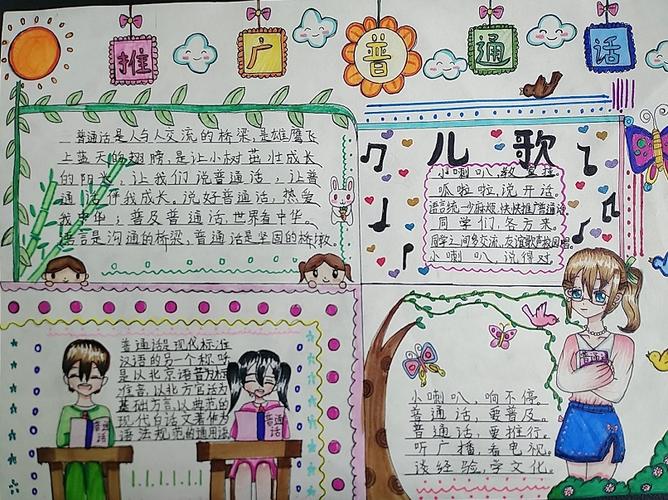 推广普通话
普通话是人与人交流的桥梁,是雄鹰飞
上蓝天的翅膀,是让小树茁壮成长
的阳光,让我们说普通话,让普
通话伴我成长。说好普通话,热爱
我中华;普及普通话,世界看中华。
语言是沟通的桥梁,普通话是坚固的桥墩。
儿歌
小喇叭
呱啦啦说开话,
语言统一少麻烦,快快推广普通话
同学们,各方来。
同学之间多交流,友谊歌声
小喇叭,说得对。
普通话是现代标准
汉语的另一个称呼
是以北京语音为标
准音,以北方官话为
基础方言,以典范的
现代白话文著作为
语法规范的通用语
普通话
普通话
小喇叭,响不停。
普通话,要普及。
普通话,要推行。
听广播,看电视。
谈经验,学文化。
普通话